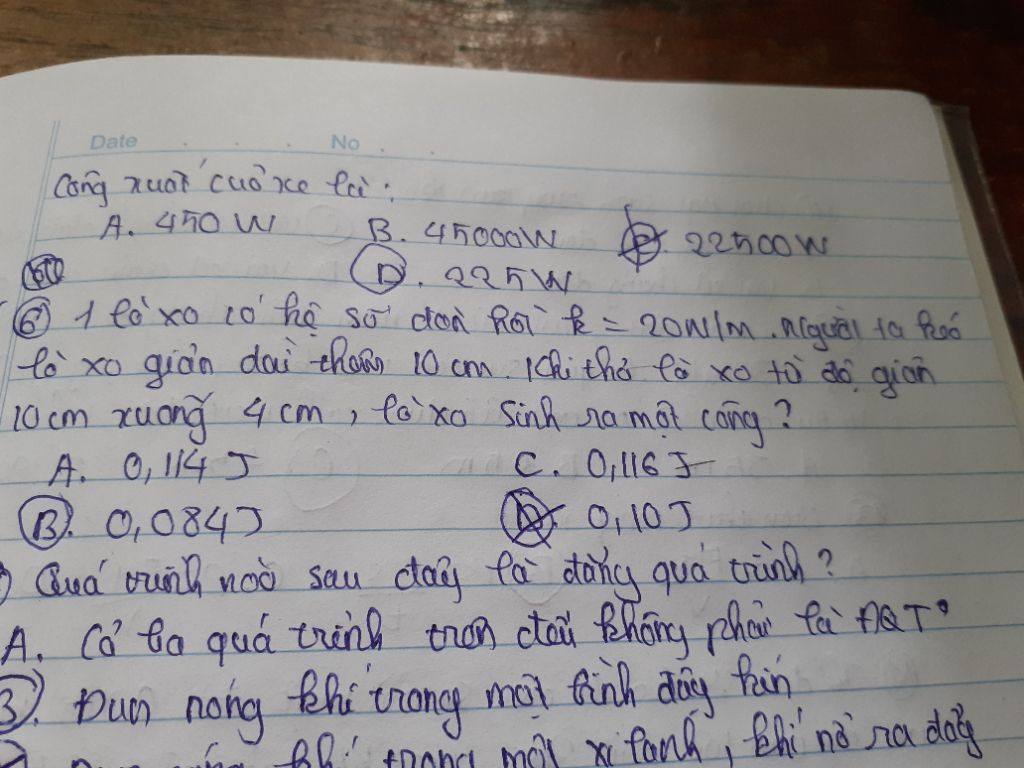 Date . . . No . .
Công xuất cuả xe là :
A. 450 W B. 45000W C. 22500W
D. 225W
6 1 lò xo có hệ số đàn hồi k = 20N/m. Người ta kéo
lò xo giản dài thêm 10 cm. Khi thả lò xo từ độ giản
10cm xuống 4 cm, lò xo sinh ra một công ?
A. 0,114 J C. 0,116 J
B. 0,084J D. 0,10J
Quá trình nào sau đây là đẳng quá trình ?
A. Cả ba quá trình trên đều không phải là ĐQT
B. Đun nóng khí trong một bình đậy kín
khí trong một xi lanh, khí nở ra đẩy